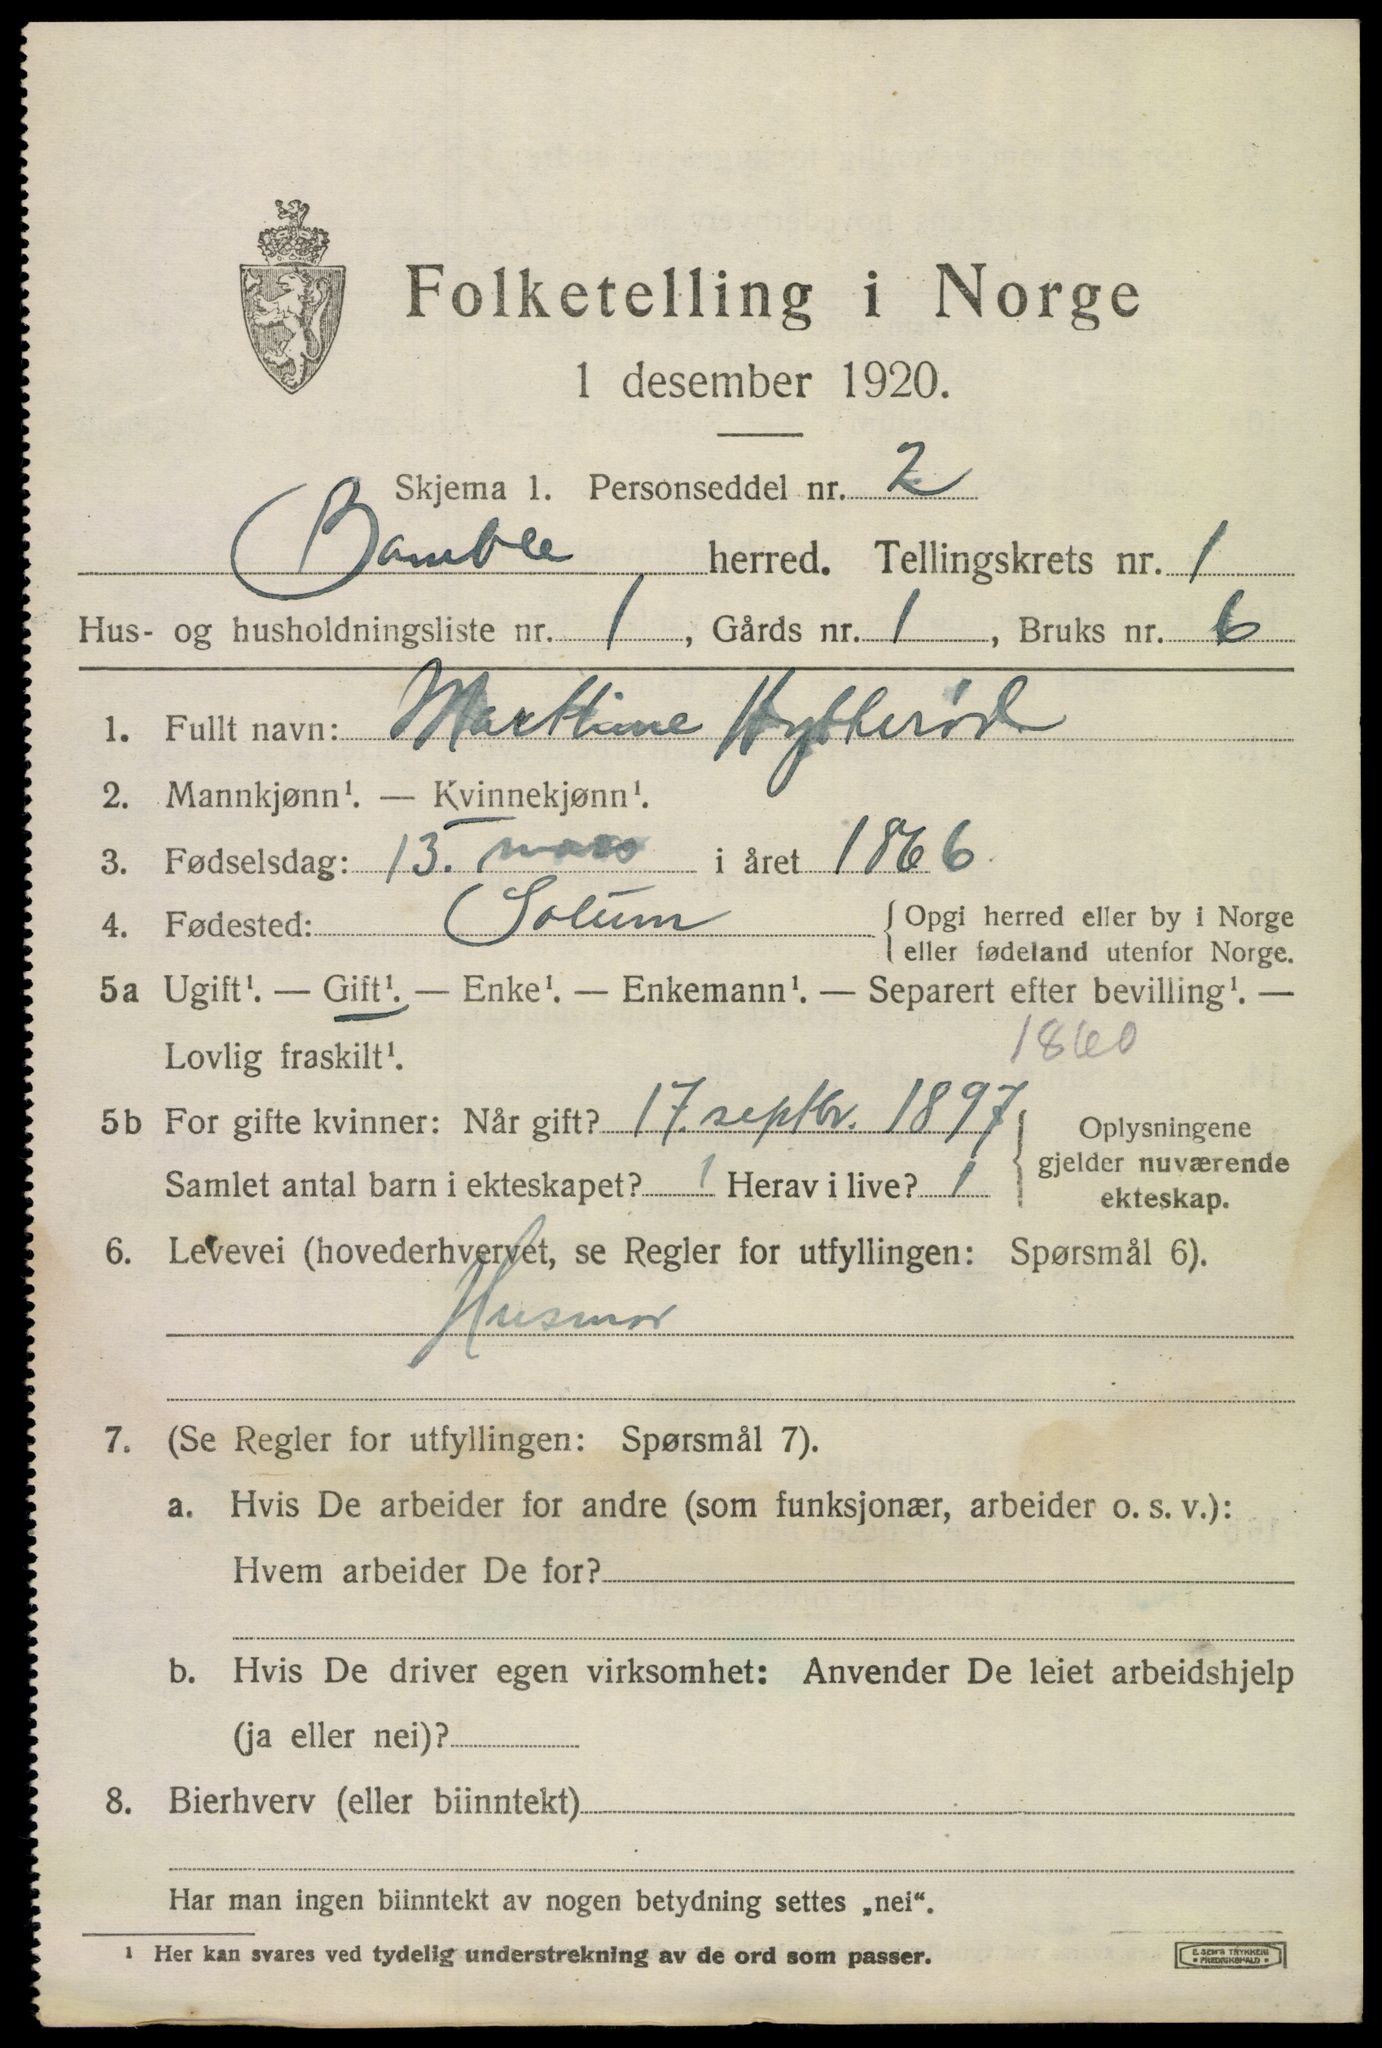 Folketelling i Norge
1 desember 1920.
Skjema 1. Personseddel nr. 2
Bamble herred. Tellingskrets nr. 1
Hus- og husholdningsliste nr. 1, Gårds nr. 1, Bruks nr. 6
1. Fullt navn: Marthine Hytterød
2. Mannkjønn¹. — Kvinnekjønn¹.
3. Fødselsdag: 13. mars i året 1866
4. Fødested: Solum { Opgi herred eller by i Norge
eller fødeland utenfor Norge.
5a Ugift¹. — Gift¹. — Enke¹. — Enkemann¹. — Separert efter bevilling¹. —
Lovlig fraskilt¹. 1860
5b For gifte kvinner: Når gift? 17. septbr. 1897 } Oplysningene
gjelder nuværende
ekteskap.
Samlet antal barn i ekteskapet? 1 Herav i live? 1
6. Levevei (hovederhvervet, se Regler for utfyllingen: Spørsmål 6).
Husmor
7. (Se Regler for utfyllingen: Spørsmål 7).
a. Hvis De arbeider for andre (som funksjonær, arbeider o. s. v.):
Hvem arbeider De for?
b. Hvis De driver egen virksomhet: Anvender De leiet arbeidshjelp
(ja eller nei)?
8. Bierhverv (eller biinntekt)
Har man ingen biinntekt av nogen betydning settes „nei“.
¹ Her kan svares ved tydelig understrekning av de ord som passer.
E. SEM'S TRYKKERI
• FREDRIKSHALD •